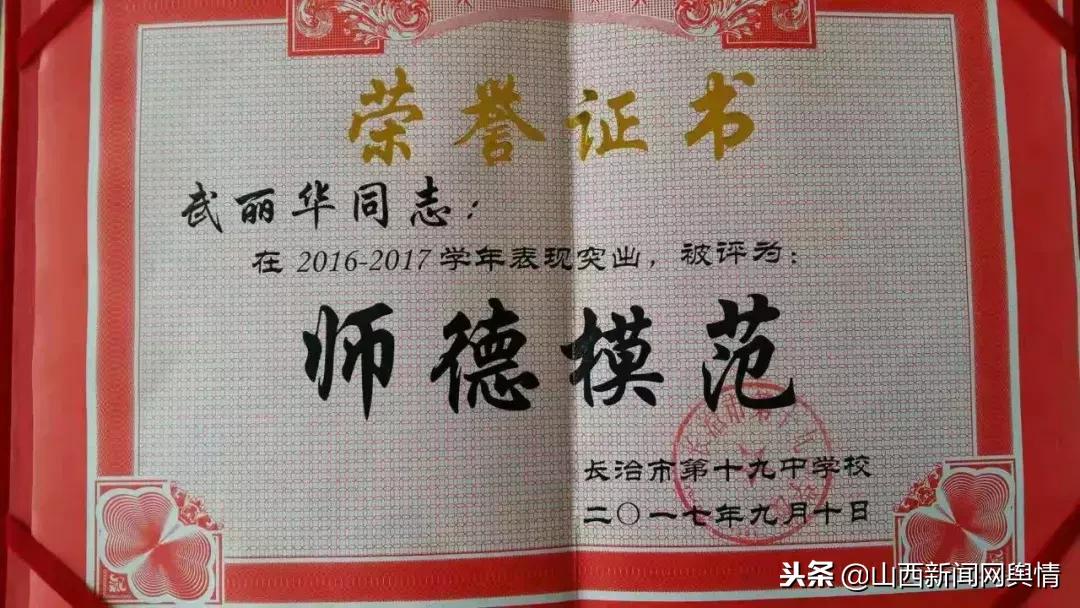 荣誉证书
武丽华同志：
在 2016-2017 学年表现突出，被评为：
师德模范
长治市第十九中学校
二〇一七年九月十日
头条 @山西新闻网舆情